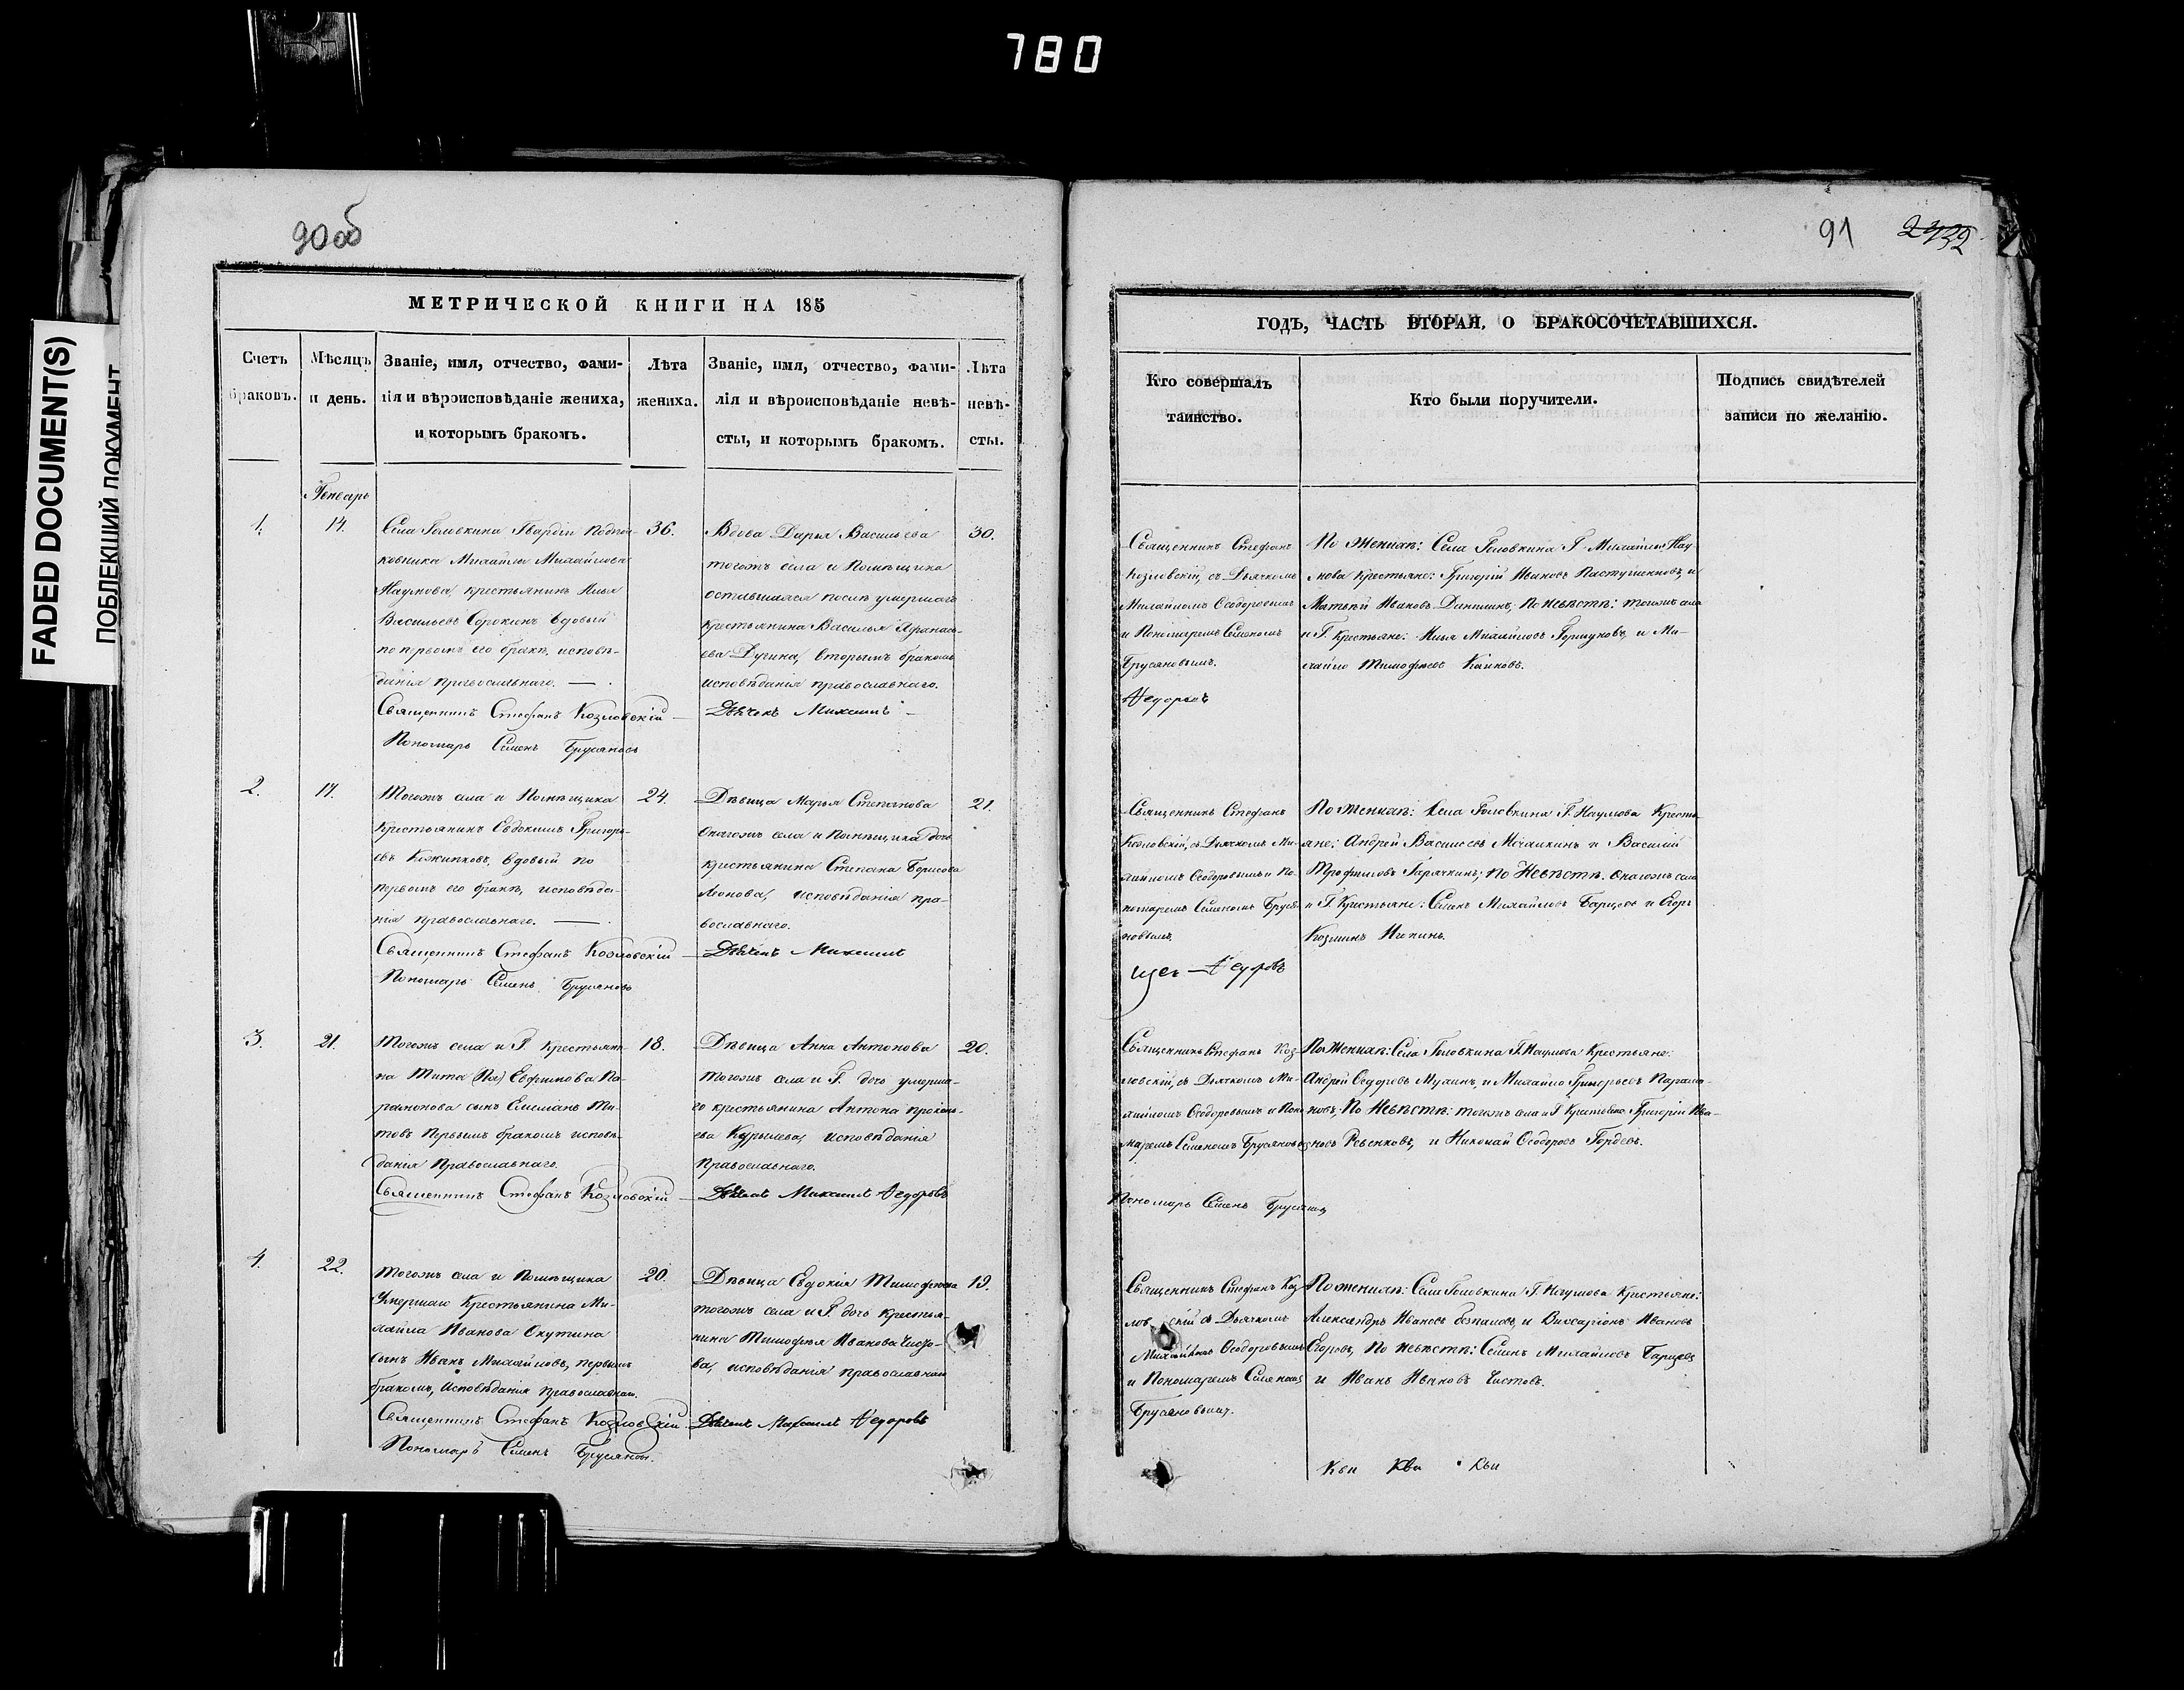 780
FADED DOCUMENT(S)
ПОБЛЕКШИЙ ДОКУМЕНТ
90об
МЕТРИЧЕСКОЙ КНИГИ НА 185
Счетъ браковъ.
Мѣсяцъ и день.
Званіе, имя, отчество, фами-
лія и вѣроисповѣданіе жениха,
и которымъ бракомъ.
Лѣта
жениха.
Званіе, имя, отчество, фами-
лія и вѣроисповѣданіе невѣ-
сты, и которымъ бракомъ.
Лѣта
невѣ-
сты.
Генварь
1.
14.
Села Головкина Гвардіи Подпол-
ковника Михайлы Михайлова
Наумова, крестьянинъ Илья
Васильевъ Сорокинъ вдовый
по первомъ его бракѣ, исповѣ-
данія православнаго. —
36.
Вдова Дарья Васильева
тогожъ села и Помѣщика
оставшаяся послѣ умершаго
крестьянина Василья Афанась-
ева Дугина, вторымъ бракомъ
исповѣданія православнаго.
30.
Священникъ Стефанъ Козловскій — Дьячекъ Михаилъ —
Пономарь Семенъ Брусяновъ
2.
17.
Тогожъ села и Помѣщика
Крестьянинъ Евдокимъ Григорь-
евъ Кожинковъ, вдовый по
первомъ его бракѣ, исповѣда-
нія православнаго. —
24.
Дѣвица Марья Степанова
Онагожъ села и Помѣщика дочь
крестьянина Степана Борисова
Леонова, исповѣданія пра-
вославнаго.
21.
Священникъ Стефанъ Козловскій — Дьячекъ Михаилъ
Пономарь Семенъ Брусяновъ
3.
21.
Тогожъ села и Г. крестьяни-
на Тита Ефимова Па-
рамонова сынъ Емелианъ Ти-
товъ Первымъ бракомъ исповѣ-
данія Православнаго.
18.
Дѣвица Анна Антонова
тогожъ села и Г. дочь умерша-
го крестьянина Антона Прокопь-
ева Курылева, исповѣданія
Православнаго.
20.
Священникъ Стефанъ Козловскій — Дьячекъ Михаилъ Ѳедоровъ
4.
22.
Тогожъ села и Помѣщика
Умершаго Крестьянина Ми-
хайла Иванова Окутина
сынъ Иванъ Михайловъ, первымъ
бракомъ, Исповѣданія православнаго.
20.
Дѣвица Евдокія Тимофѣева
тогожъ села и Г. дочь Крестья-
нина Тимофѣя Иванова Чисто-
ва, исповѣданія православнаго
19.
Священникъ Стефанъ Козловскій Дьячекъ Михаилъ Ѳедоровъ
Пономарь Семенъ Брусяновъ.
91
ГОДЪ, ЧАСТЬ ВТОРАЯ, О БРАКОСОЧЕТАВШИХСЯ.
Кто совершалъ
таинство.
Кто были поручители.
Подпись свидѣтелей
записи по желанію.
Священникъ Стефанъ
Козловскій, съ Дьячкомъ
Михайломъ Ѳеодоровымъ
и Пономаремъ Семеномъ
Брусяновымъ.
Ѳедоровъ
По Женихѣ: Села Головкина Г. Михайлы Нау-
мова крестьяне: Григорій Ивановъ Пастушенковъ, и
Матвѣй Ивановъ Динминъ, По невѣстѣ: тогожъ села
и Г. Крестьяне: Илья Михайловъ Горшуковъ, и Ми-
хайло Тимофѣевъ Каиковъ.
Священникъ Стефанъ
Козловскій, съ Дьячкомъ Ми-
хайломъ Ѳеодоровымъ и По-
номаремъ Семеномъ Бруся-
новымъ.
Ѳедоровъ
По Женихѣ: Села Головкина Г. Наумова Кресть-
яне: Андрей Васильевъ Мочалкинъ и Василій
Трофимовъ Горячкинъ; По Невѣстѣ: Онагожъ села
и Г. Крестьяне: Семенъ Михайловъ Барцевъ и Егоръ
Козминъ Ильинъ.
Священникъ Стефанъ Коз-
ловскій, съ Дьячкомъ Ми-
хайломъ Ѳеодоровымъ и Поно-
маремъ Семеномъ Брусяновымъ
Пономарь Семенъ Брусяновъ
По Женихѣ: Села Головкина Г. Наумова Крестьяне:
Андрей Ѳедоровъ Мухинъ, и Михайло Григорьевъ Парамо-
новъ, По Невѣстѣ: тогожъ села и Г. Крестьяне Григорій Ива-
новъ Ревенковъ, и Николай Ѳеодоровъ Гордѣевъ.
Священникъ Стефанъ Коз-
ловскій съ Дьячкомъ
Михайломъ Ѳеодоровымъ
и Пономаремъ Семеномъ
Брусяновымъ.
По женихѣ: Села Головкина Г. Наумова Крестьяне:
Александръ Ивановъ Безпаловъ, и Виссаріонъ Ивановъ
Егоровъ, По невѣстѣ: Семенъ Михайловъ Барцевъ
и Иванъ Ивановъ Чистовъ.